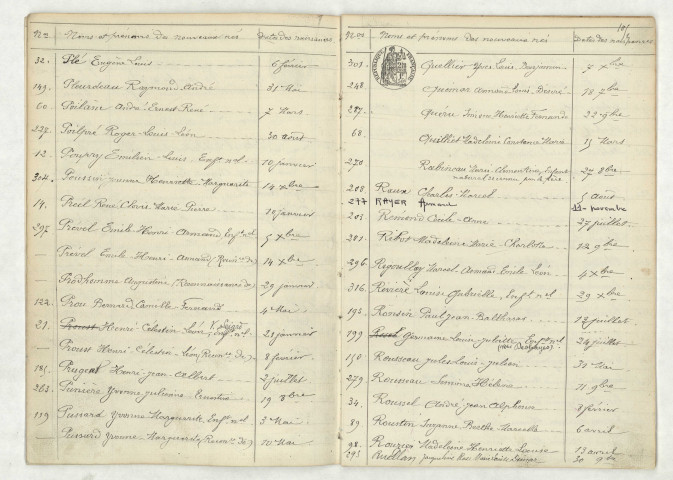 Nos Noms et prénoms des nouveaux nés Dates des naissances
32. Plé Eugène Louis 6 février
149. Pleurdeau Raymond André 31 Mai
60 Poilane André Ernest René 7 Mars
228. Poilpré Roger Louis Léon 30 août
12 Poupry Emilien Louis Enft nel 10 janvier
304. Poussin Henriette Marguerite 14 xbre
14. Preil René Clovis Marie Pierre janvier
297 Prével Emile Henri Armand, Enft nel 5 xbre
— Prével Emile Henri Armand (Reconn. de) 14 xbre
— Prodhomme Augustine (Reconnaissance de) 29 janvier
122. Prou Bernard Camille Fernand 4 Mai
21. Proust Henri Célestin Léon, Enft nel 21 janvier
— Proust Henri Célestin Léon (Reconn. de) 8 février
185. Prugent Henri Jean Albert 2 juillet
263. Punière Yvonne Juliana Ernestine 19 8bre
119 Pussard Yvonne Marguerite, Enft nel 3 Mai
— Pussard Yvonne Marguerite (Reconn. de) 10 Mai
Nos Noms et prénoms des nouveaux nés Dates des naissances
309. Quellier Yves Louis Benjamin 7 xbre
248 Quémar Armand Louis Désiré 18 7bre
287 Quéré Simone Henriette Fernande 22 9bre
68 Quilliet Madeleine Constance Marie 15 Mars
270 Rabineau Marie Clémentine, Enfant
naturel reconnu par le père 27 8bre
208. Raux Charles Marcel 5 août
277 RAYER Armand novembre
203. Remond Cécile Anne 27 juillet
281. Ribot Madeleine Marie Charlotte 12 9bre
296 Marcel Armand Emile Léon 4 xbre
316. Rivière Louise Gabrielle, Enft nel 29 xbre
193. Ronsin Paul Jean Balthasar 12 juillet
199 Germaine Louise Juliette, Enft nel 24 juillet
150 Rousseau Jules Louis Julien 30 Mai
279. Rousseau Simone Hélène 11 9bre
34. Roussel André Jean Alphonse 8 février
89. Rourton Suzanne Berthe 6 avril
98. Rouzier Madeleine Henriette Louise 13 avril
293 Ruellan Jacqueline 30 9bre